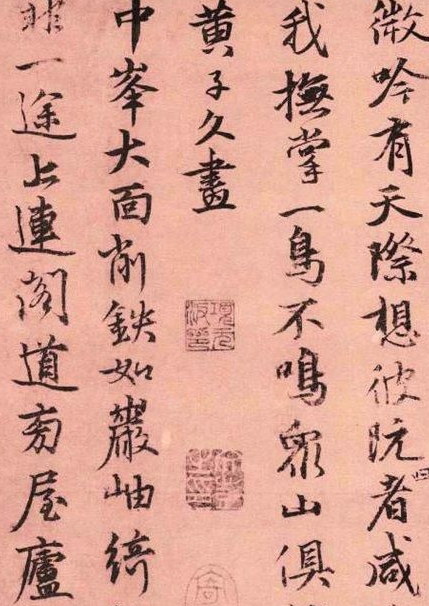 微吟有天際想彼阮者咸
我撫掌一鳥不鳴眾山俱
黃子久畫
中峯大面削鉄如巖岫綺
非一途上連閣道旁屋廬